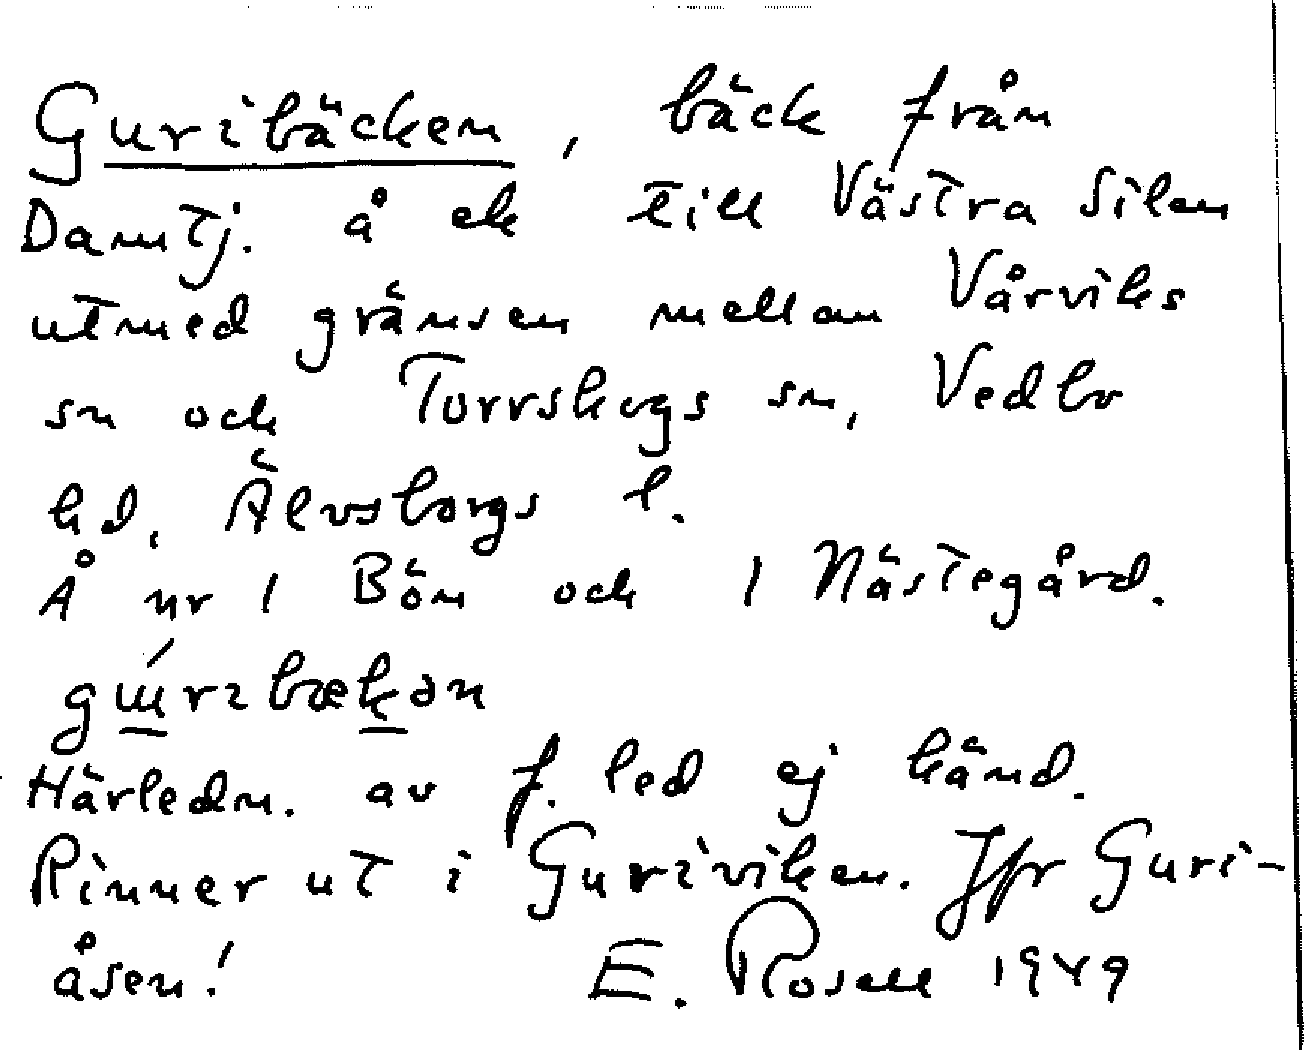 Guribäcken, bäck från
Damtj. å ek till Västra Silen
utmed gränsen mellan Vårviks
sn och Torrskogs sn, Vedbo
hd, Älvsborgs l.
Å nr 1 Bön och 1 Nästegård.
Härledn. av f. led ej känd.
Rinner ut i Guriviken. Jfr Guri-
åsen! E. Rosell 1949